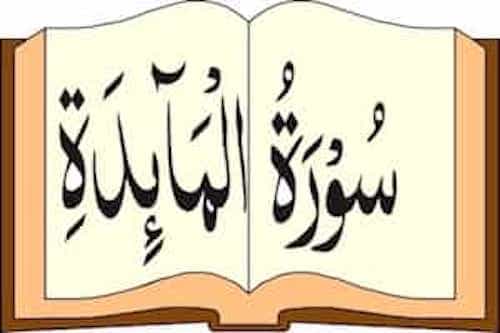 سُوْرَةُ الْمَآئِدَةِ